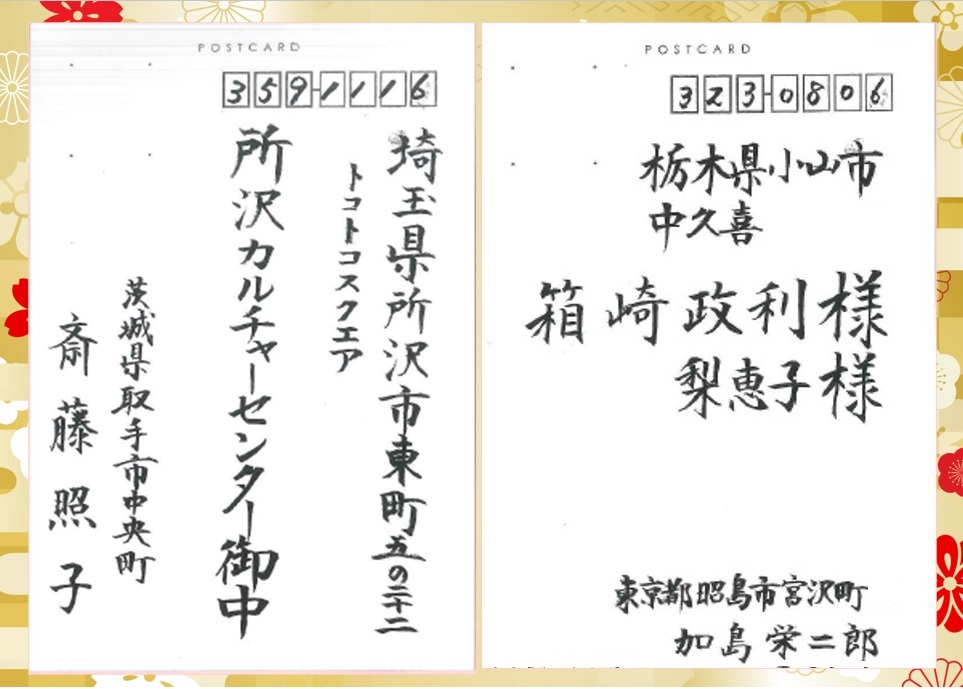 POSTCARD
359-1116
埼玉県所沢市東町五の二十二
トコトコスクエア
所沢カルチャーセンター御中
茨城県取手市中央町
斎藤照子
POSTCARD
323-0806
栃木県小山市
中久喜
箱崎政利様
梨恵子様
東京都昭島市宮沢町
加島栄二郎